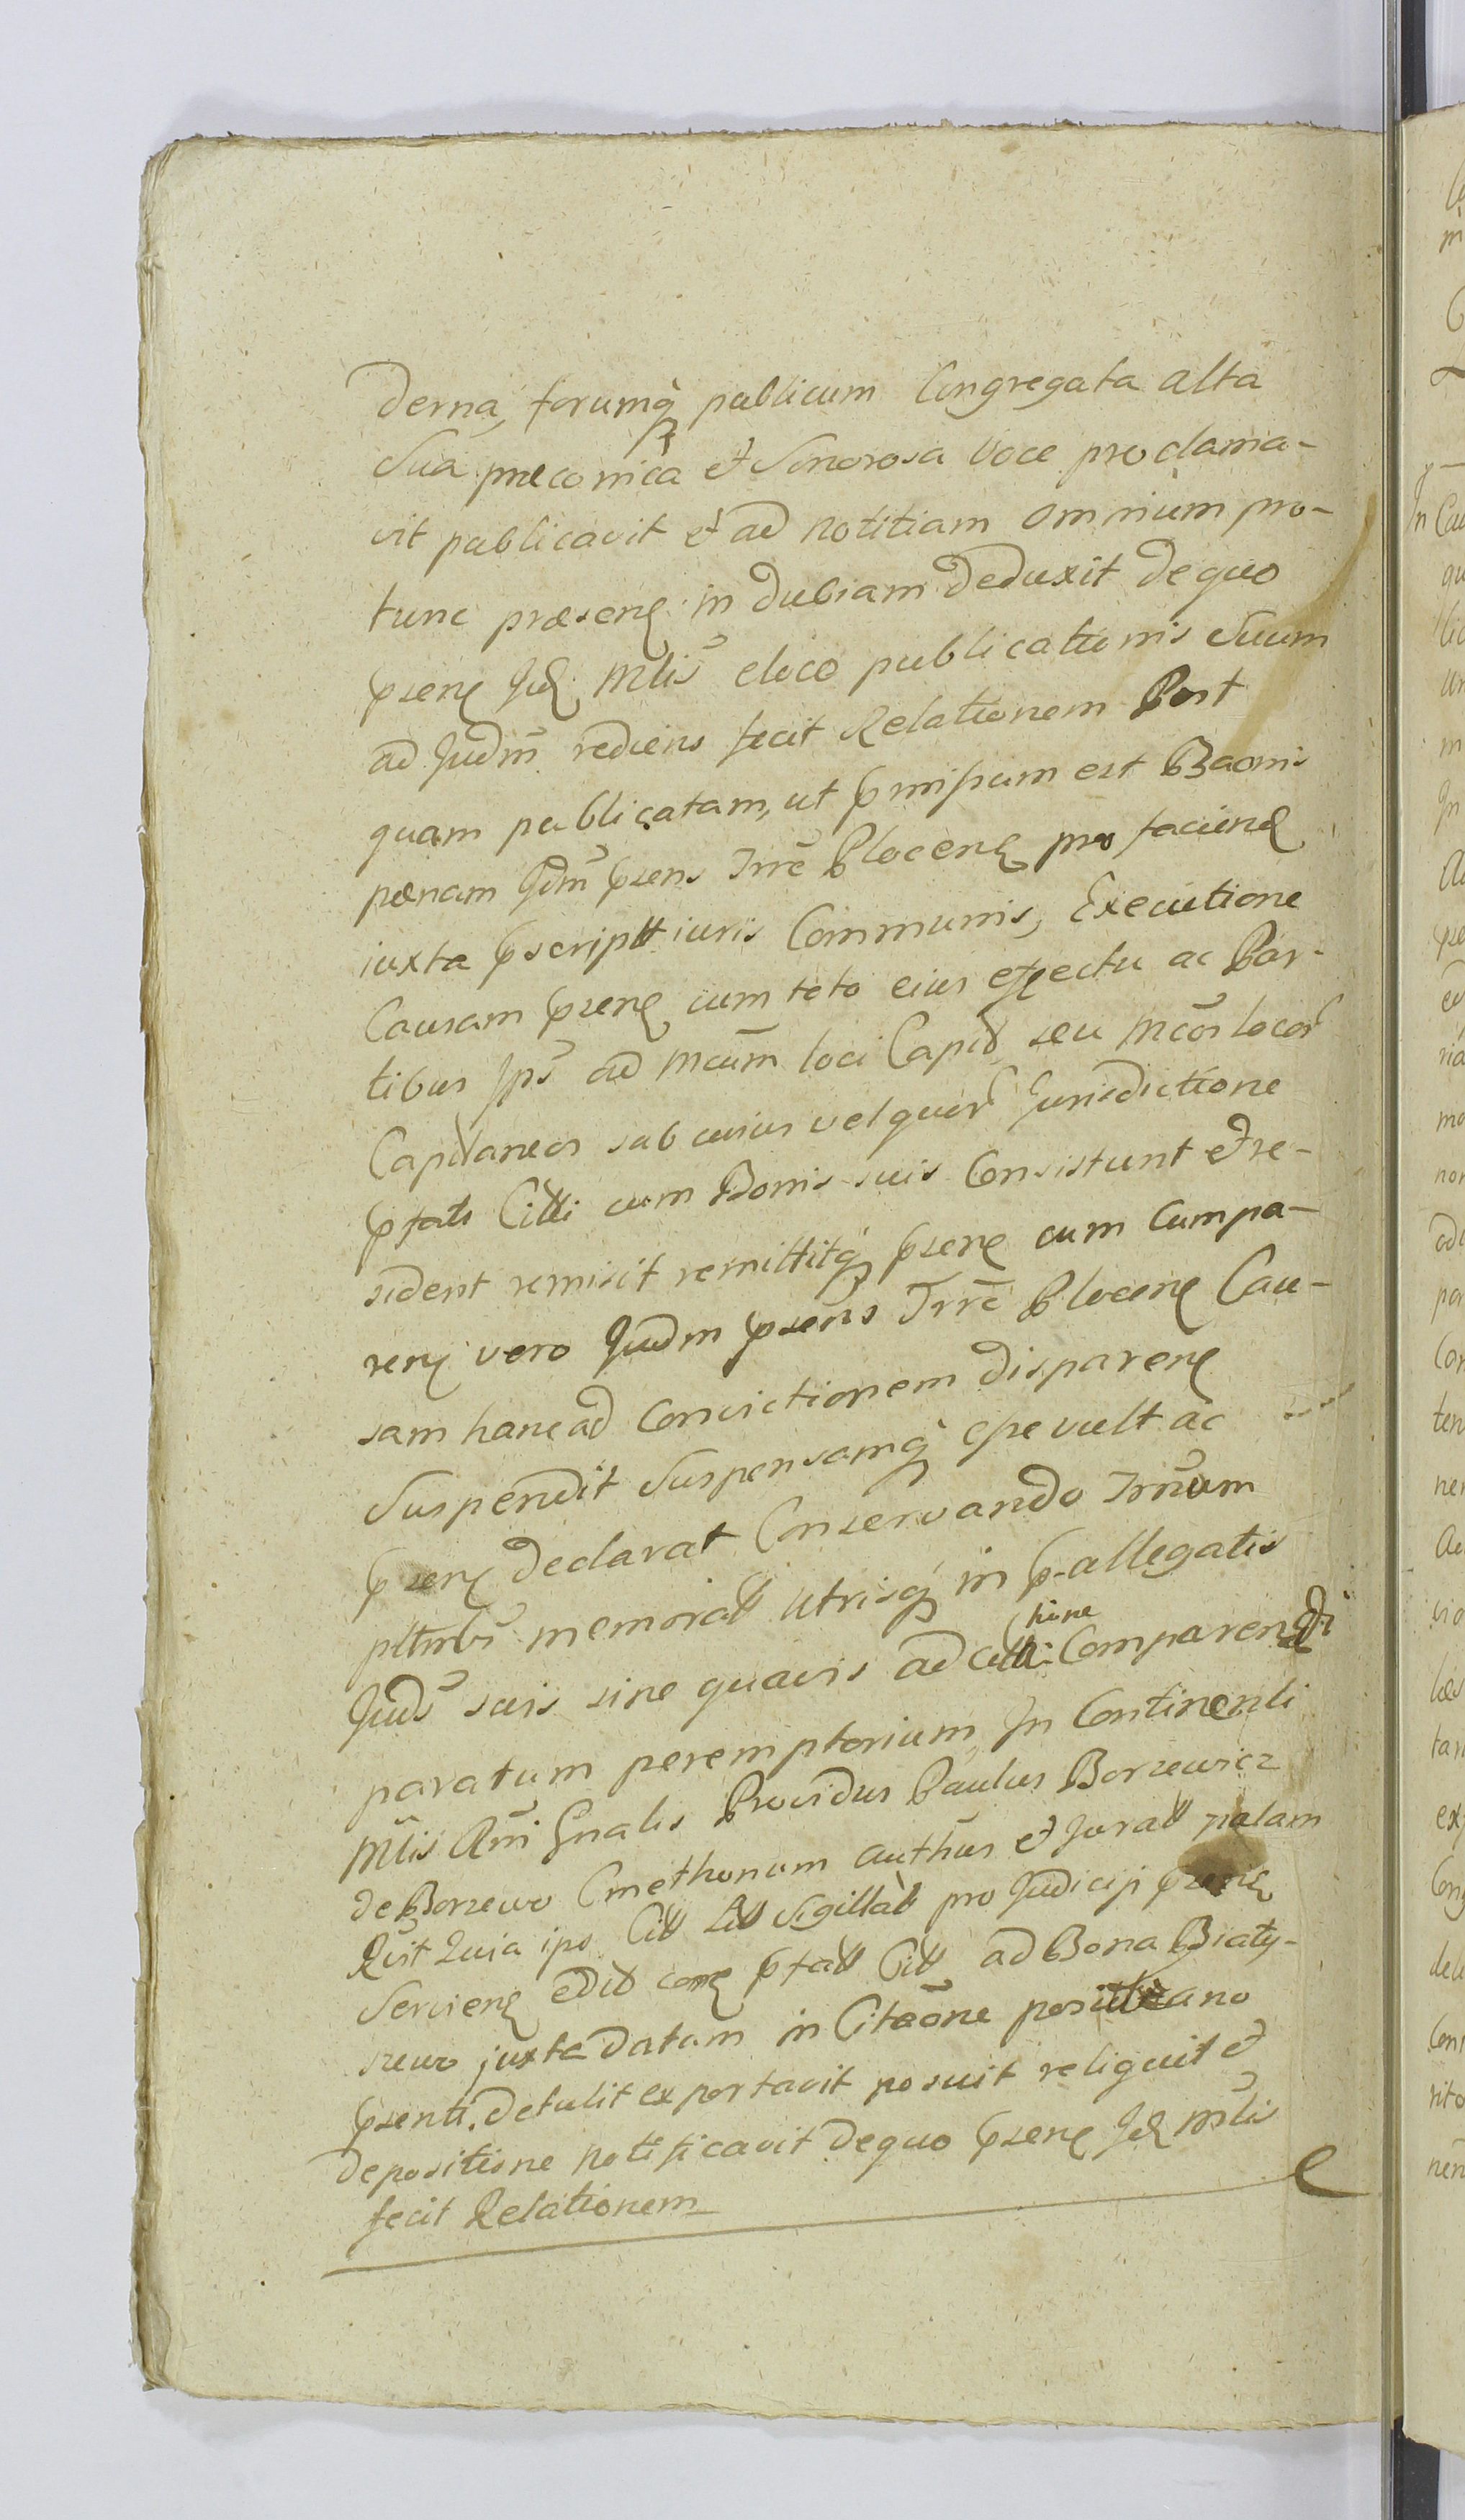 derna, forumq₃ publicum Congregata alta
Sua præconica et Sonorosa Voce proclama-
vit publicavit et ad notitiam omnium pro-
tunc præsen. in dubiam deduxit de quo
præsen. Jud. Mlis eloco publicationis Suum
ad Judm rediens fecit Relationem Post
quam publicatam, ut pmissum est Baonis
pænam Jdm psens Trrē Plocen. pro facien.
iuxta pscriptt iuris Communis, Executione
Causam psen. cum toto eius effectu ac Par-
tibus Ips ad Mcum loci Capid seu Mcos locor
Capitaneos sub cuius vel quor Jurisdictione
pfats Citti cum Bonis suis Consistunt et re-
sident remisit remittitq₃ psen. cum Compa-
ren. vero Judm psens Trrē Plocen. Cau-
sam hanc ad Convictionem disparen.
Suspendit Suspensamq₃ esse vult ac
psen. declarat Conservando Trnum
ptbus memoratt utrisq₃ in p-allegatis
Juds suis sine quavis ad hinc Comparendi
paratum peremptorium, In Continenti
Mlis Ani Gnalis Providus Paulus Borzewicz
de Borzewo Cmethonum authus et Juratt palam
Rcit Quia ips Citt Litt Sigillatt pro Judicij psen.
Servien. edit con. pfatt Citt ad Bona Biały-
szewo juxta datam in Citaõne posit ano
psenti. detulit exportavit posuit reliquit et
depositione notificavit de quo psen. Jud. Mlis
fecit Relationem